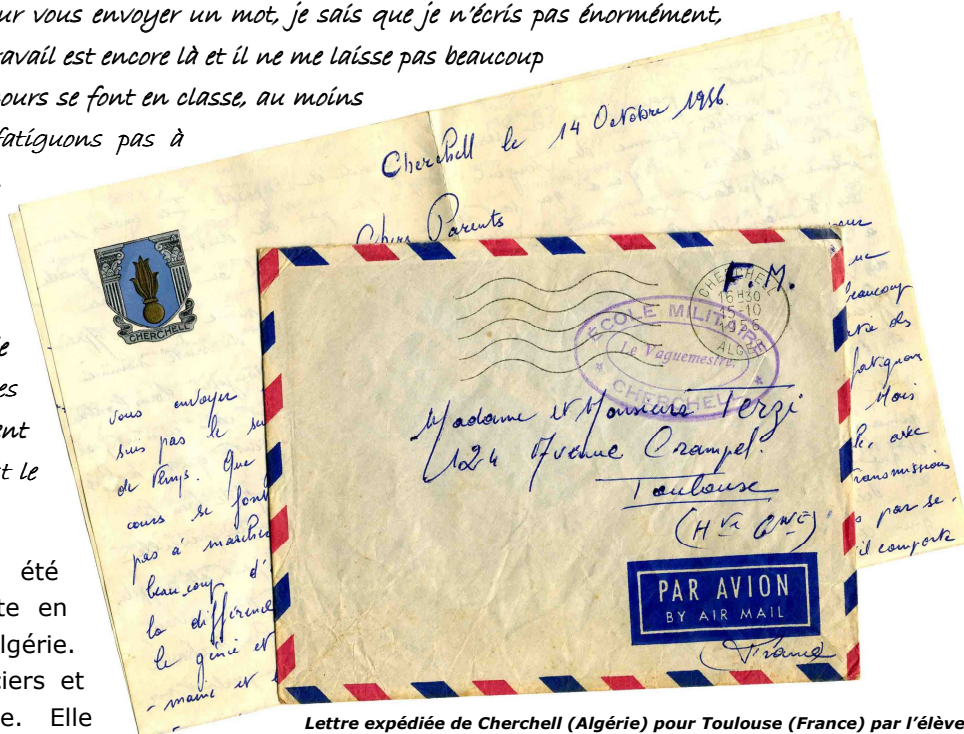 ur vous envoyer un mot, je sais que je n'écris pas énormément,
ravail est encore là et il ne me laisse pas beaucoup
ours se font en classe, au moins
fatiguons pas à
e
es
ent
t le
été
te en
lgérie.
iers et
e. Elle
Cherchell le 14 Octobre 1956.
Chers Parents
CHERCHELL
vous envoyer
suis pas le
de temps. Que
cours se font
pas à marcher
beaucoup d'
la différence
le génie et
beaucoup
fatiguons
Mais
avec
transmissions
par se
il comporte
F.M.
CHERCHELL
16H30
15-10
1956
ALGER
ÉCOLE MILITAIRE
Le Vaguemestre.
CHERCHELL
Madame et Monsieur Terzi
124 Avenue Crampel.
Toulouse
(Hte Gne)
PAR AVION
BY AIR MAIL
France
Lettre expédiée de Cherchell (Algérie) pour Toulouse (France) par l'élève